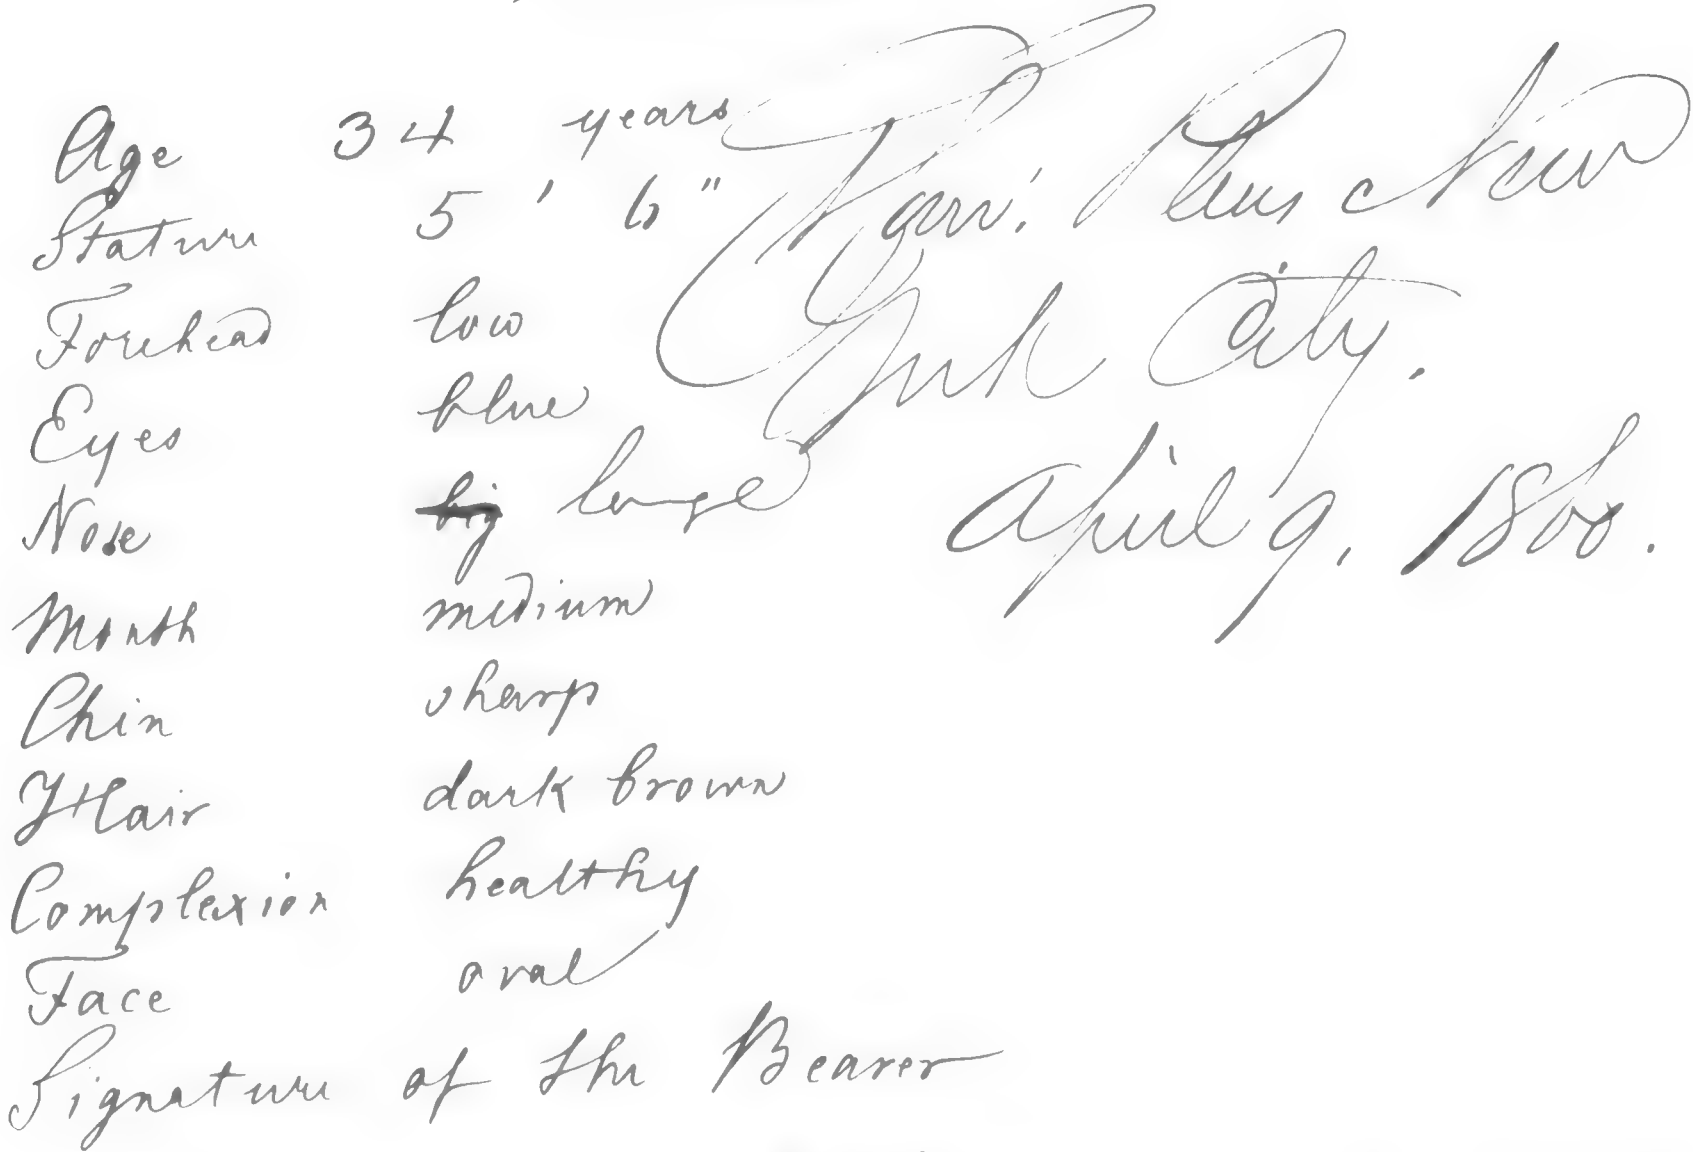 Age 34 years
Stature 5' 6"
Forehead low
Eyes blue
Nose big large
Mouth medium
Chin sharp
Hair dark brown
Complexion healthy
Face oval
Signature of the Bearer
New
York City.
April 9, 1860.